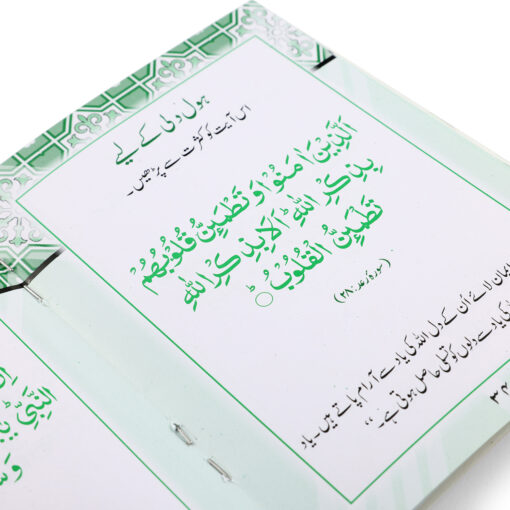 ہول دلی کے لیے
اس آیت کو کثرت سے پڑھیں۔
اَلَّذِیْنَ اٰمَنُوْا وَ تَطْمَىِٕنُّ قُلُوْبُهُمْ
بِذِكْرِ اللّٰهِؕ اَلَا بِذِكْرِ اللّٰهِ
تَطْمَىِٕنُّ الْقُلُوْبُؕ
(سورہ رعد: ۲۸)
ایمان لائے اُن کے دل اللہ کی یاد سے آرام پاتے ہیں۔ یاد
یاد سے دلوں کو تسلی حاصل ہوتی ہے۔“
النَّبِیِّ